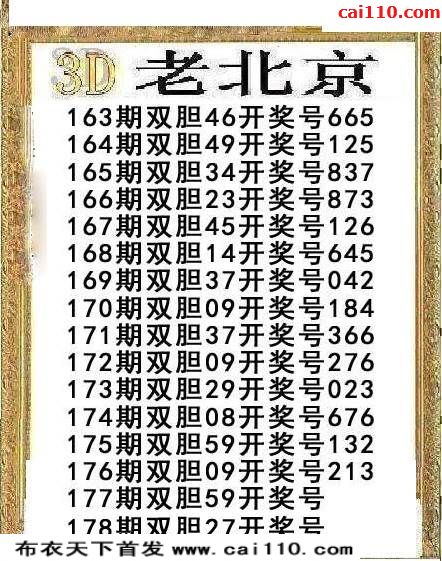 cai110.com
3D 老北京
163期双胆46开奖号665
164期双胆49开奖号125
165期双胆34开奖号837
166期双胆23开奖号873
167期双胆45开奖号126
168期双胆14开奖号645
169期双胆37开奖号042
170期双胆09开奖号184
171期双胆37开奖号366
172期双胆09开奖号276
173期双胆29开奖号023
174期双胆08开奖号676
175期双胆59开奖号132
176期双胆09开奖号213
177期双胆59开奖号
178期双胆27开奖号
布衣天下首发 www.cai110.com